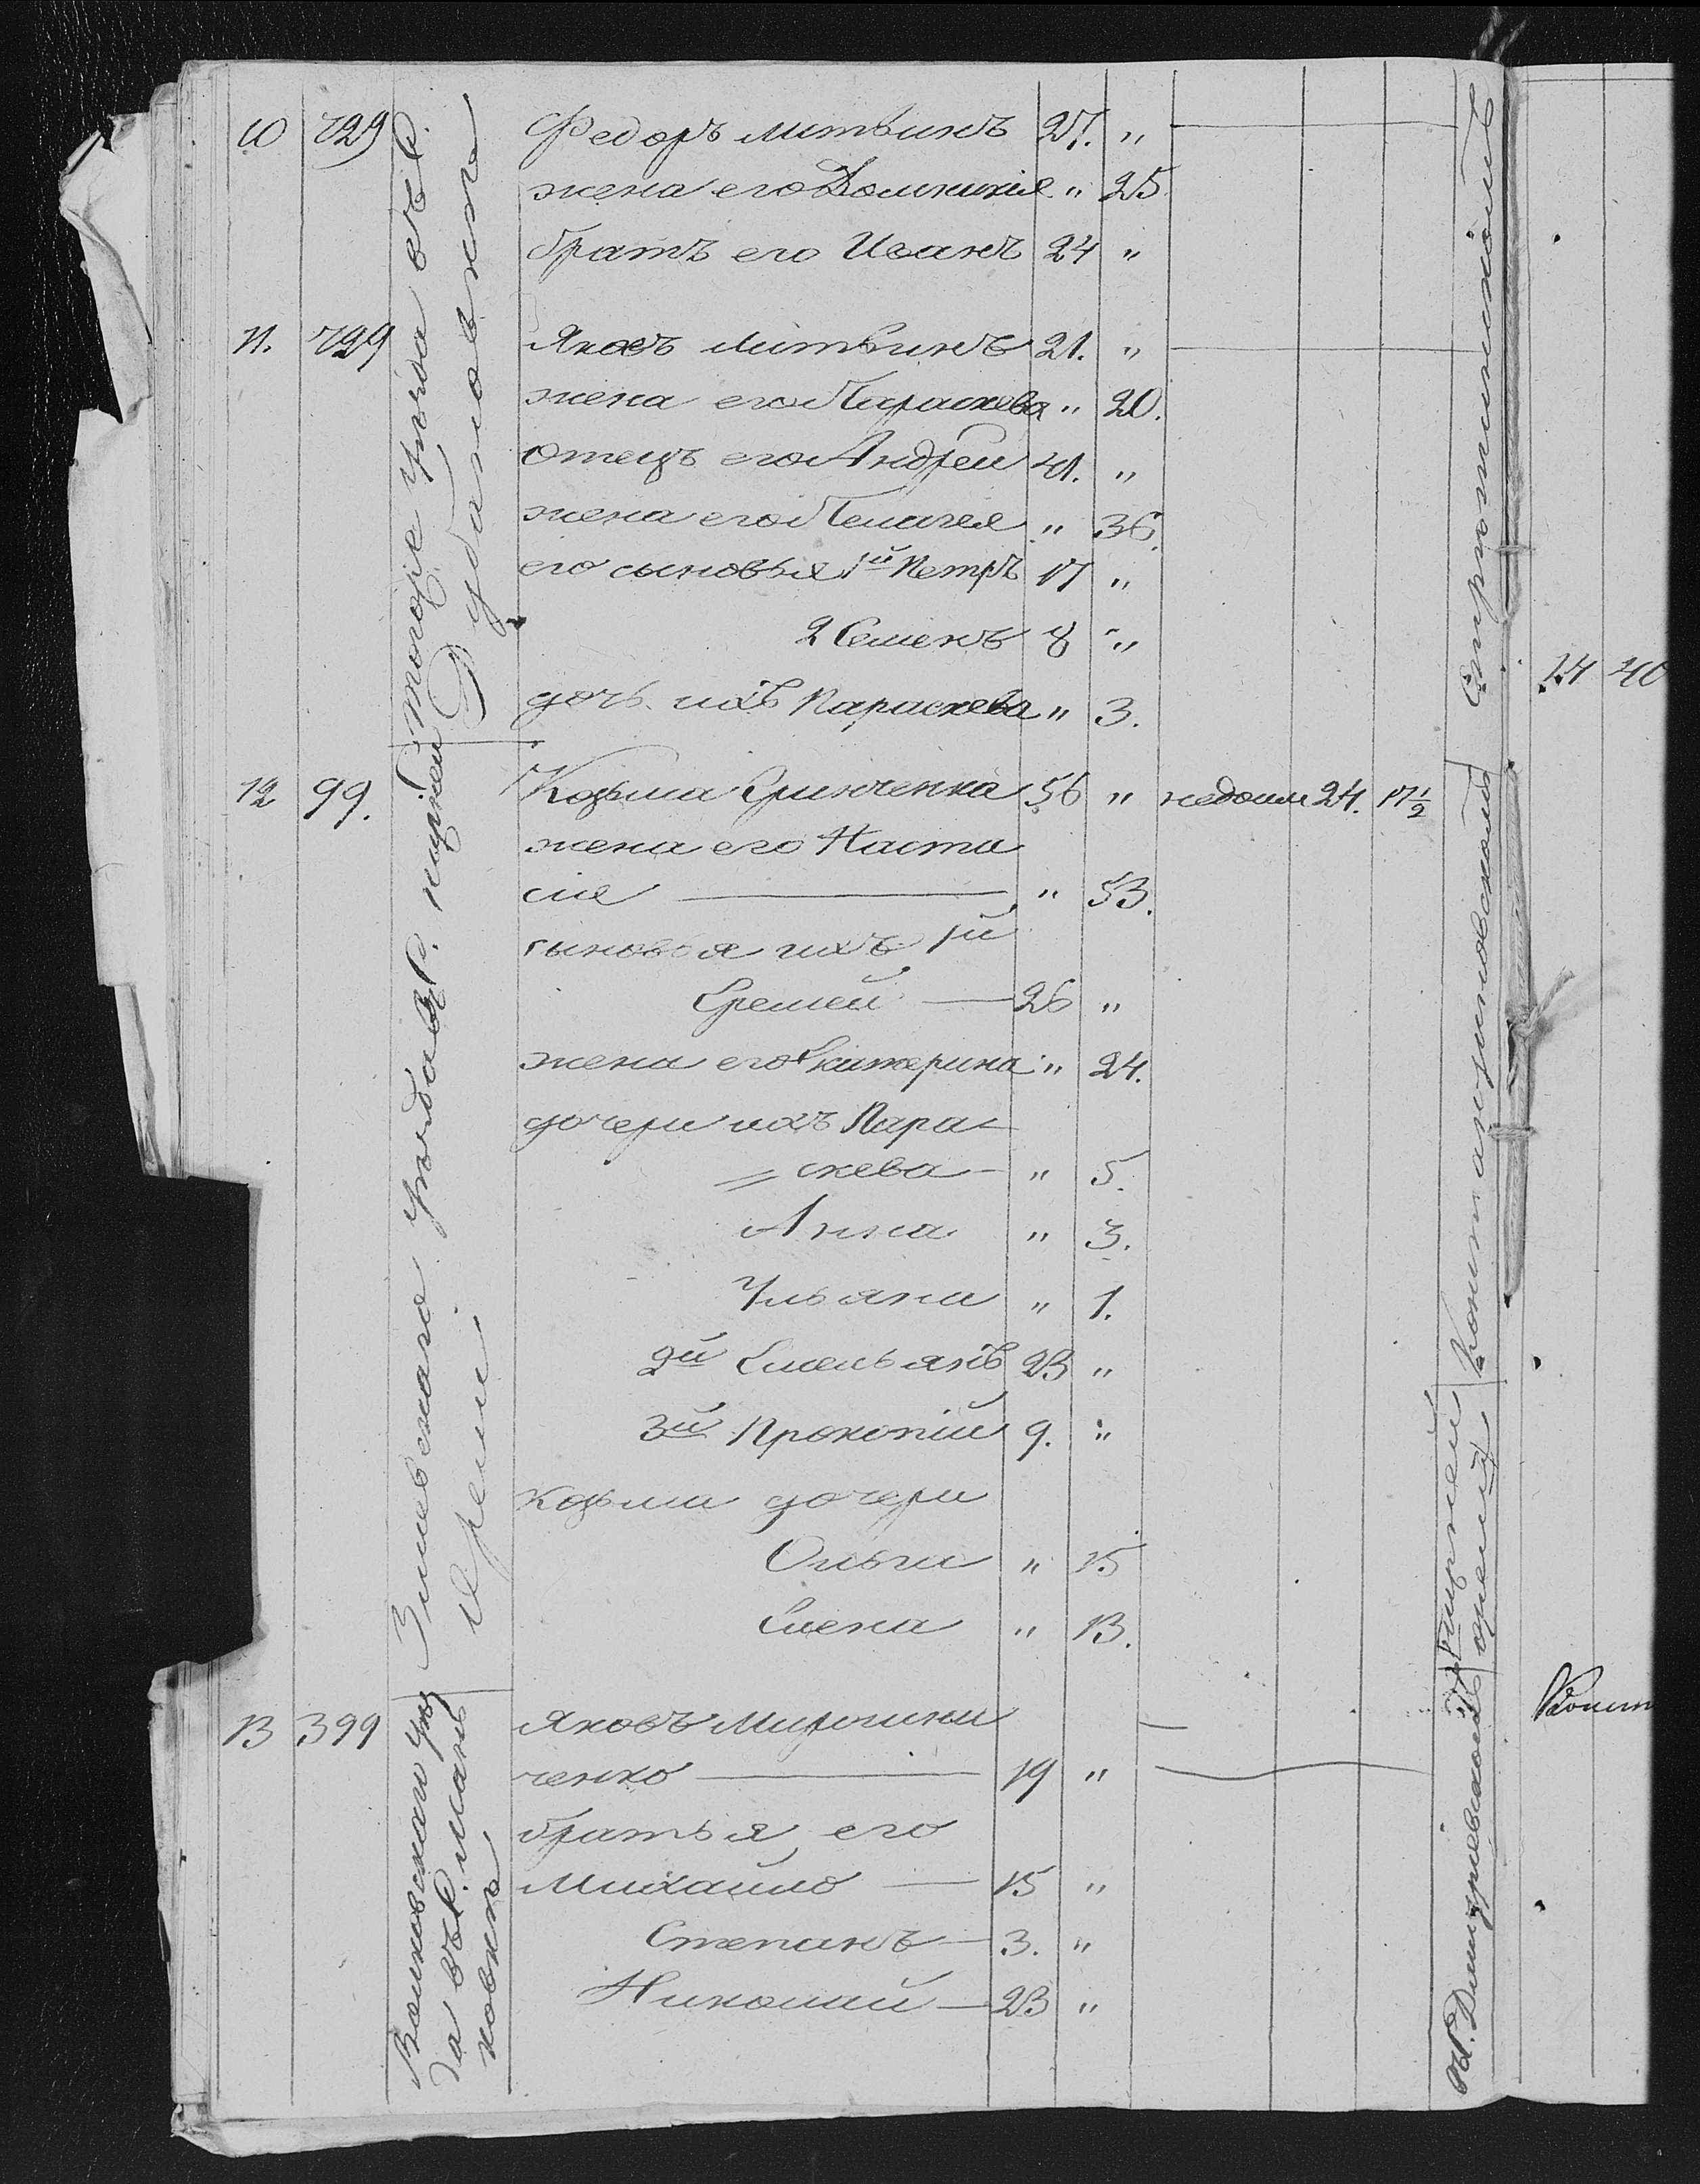 10 729 Федоръ Литвинъ 27. "
жена его Домникия " 25
братъ его Иванъ 24 "
11. 729 Яковъ Литвинъ 21. "
жена его Параскева " 20.
отецъ его Андрей 41. "
жена его Пелагея " 36.
его сыновья 1й Петръ 17 "
2 Семенъ 8 "
дочь ихъ Параскева " 3.
тогоже уезда въ С.
12 99. Козьма Гринченка 56 " недоим 24. 17½
жена его Наста
сия " 53.
сыновья ихъ 1й
Еремей 26 "
жена его Катерина " 24.
дочери ихъ Пара-
скева " 5.
Анна " 3.
Ульяна " 1.
2й Емельянъ 23 "
3й Прокопий 9. "
Козьма дочери
Ольга " 15
Елена " 13.
Змиевскаго уезда
13 399 Яковъ Мирошни
ченко 19 "
братья его
Михайло 15 "
Степанъ 3. "
Николай 23 "
Волковскаго уез
да въ С.
Константиновскомъ
С. Дмитриевской
14 40